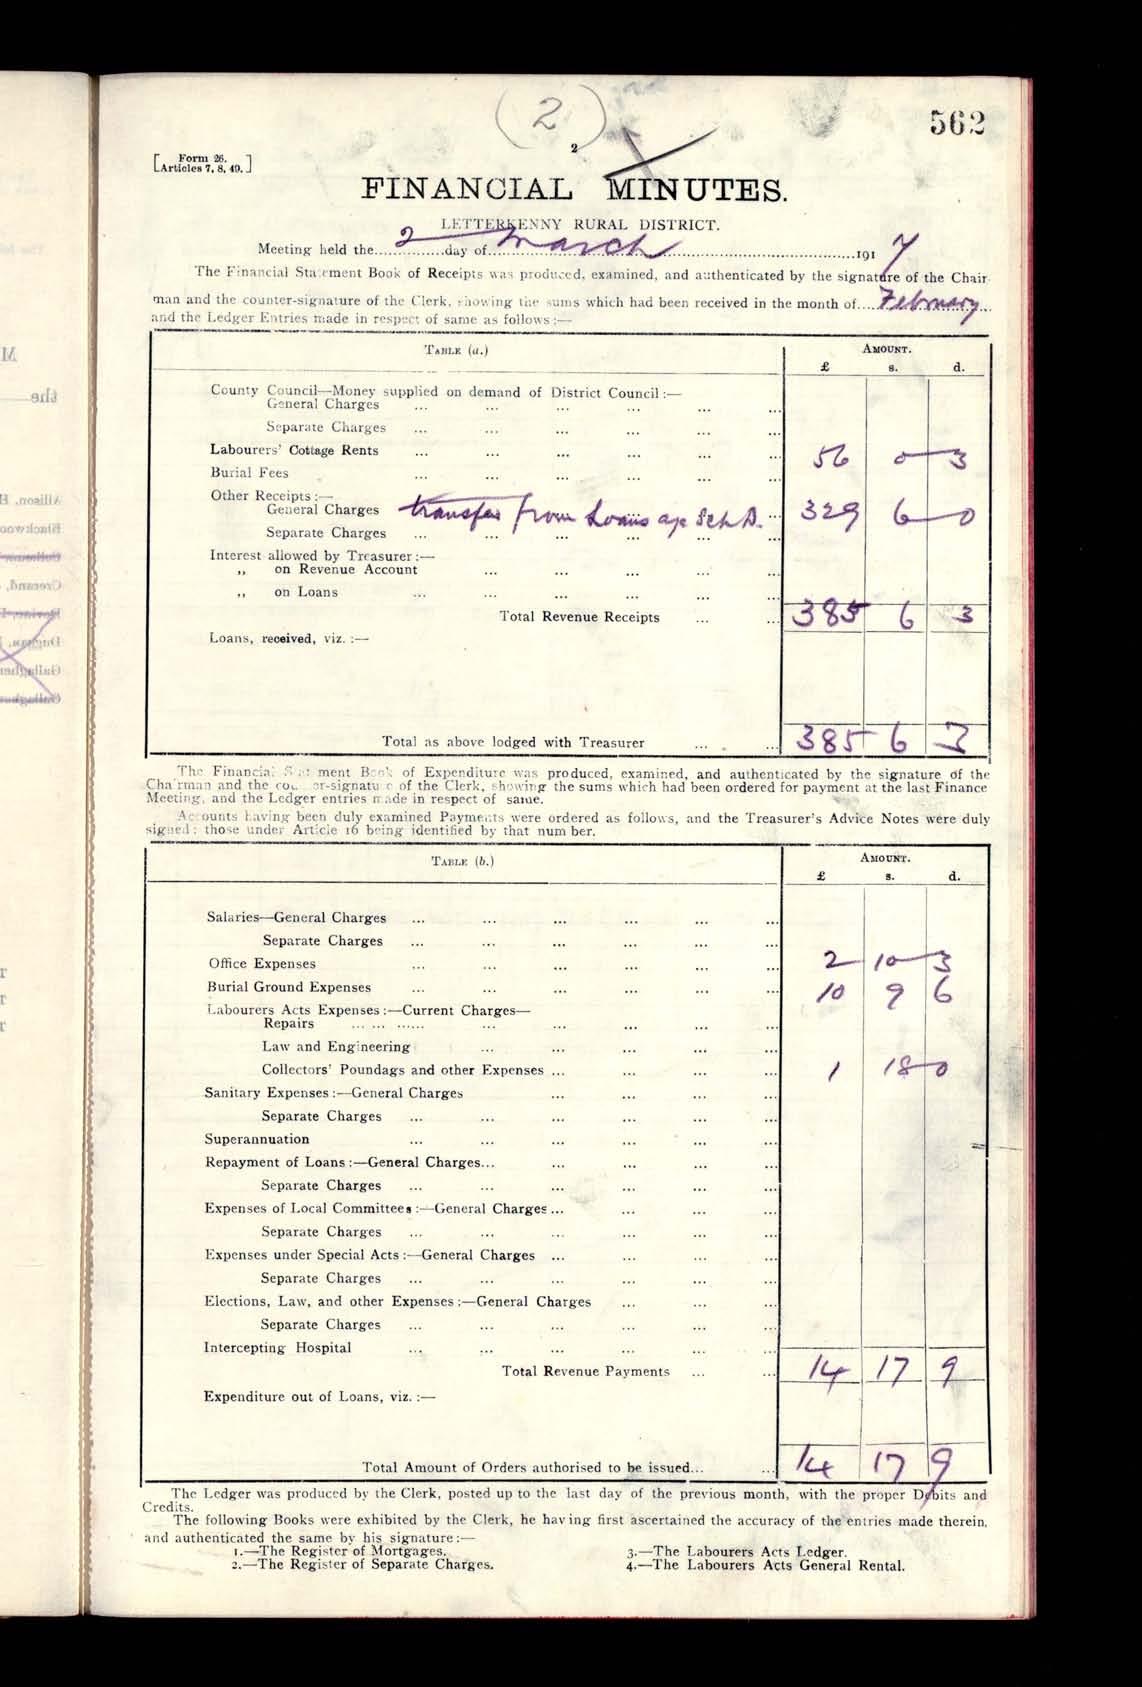 (2)
562
2
[Form 26.
Articles 7, 8, 49.]
FINANCIAL MINUTES.
LETTERKENNY RURAL DISTRICT.
Meeting held the 2 day of March 1917
The Financial Statement Book of Receipts was produced, examined, and authenticated by the signature of the Chair-
man and the counter-signature of the Clerk, showing the sums which had been received in the month of February
and the Ledger Entries made in respect of same as follows:—
TABLE (a.) AMOUNT.
£ s. d.
County Council—Money supplied on demand of District Council:—
General Charges ... ... ... ... ... ...
Separate Charges ... ... ... ... ... ...
Labourers' Cottage Rents ... ... ... ... ... ... 56 0 3
Burial Fees ... ... ... ... ... ...
Other Receipts:—
General Charges transfer from Loans a/c Sch B. ... 329 6 0
Separate Charges ... ... ... ... ... ...
Interest allowed by Treasurer:—
,, on Revenue Account ... ... ... ... ...
,, on Loans ... ... ... ... ... ...
Total Revenue Receipts ... ... 385 6 3
Loans, received, viz.:—
Total as above lodged with Treasurer ... ... 385 6 3
The Financial Statement Book of Expenditure was produced, examined, and authenticated by the signature of the
Chairman and the counter-signature of the Clerk, showing the sums which had been ordered for payment at the last Finance
Meeting, and the Ledger entries made in respect of same.
Accounts having been duly examined Payments were ordered as follows, and the Treasurer's Advice Notes were duly
signed: those under Article 16 being identified by that number.
TABLE (b.) AMOUNT.
£ s. d.
Salaries—General Charges ... ... ... ... ... ...
Separate Charges ... ... ... ... ... ...
Office Expenses ... ... ... ... ... ... 2 10 3
Burial Ground Expenses ... ... ... ... ... ... 10 9 6
Labourers Acts Expenses:—Current Charges—
Repairs ... ... ...... ... ... ... ... ...
Law and Engineering ... ... ... ... ...
Collectors' Poundags and other Expenses ... ... ... ... 1 18 0
Sanitary Expenses:—General Charges ... ... ... ...
Separate Charges ... ... ... ... ... ...
Superannuation ... ... ... ... ... ...
Repayment of Loans:—General Charges... ... ... ... ...
Separate Charges ... ... ... ... ... ...
Expenses of Local Committees:—General Charges ... ... ... ...
Separate Charges ... ... ... ... ... ...
Expenses under Special Acts:—General Charges ... ... ... ...
Separate Charges ... ... ... ... ... ...
Elections, Law, and other Expenses:—General Charges ... ... ...
Separate Charges ... ... ... ... ... ...
Intercepting Hospital ... ... ... ... ... ...
Total Revenue Payments ... ... 14 17 9
Expenditure out of Loans, viz.:—
Total Amount of Orders authorised to be issued... ... 14 17 9
The Ledger was produced by the Clerk, posted up to the last day of the previous month, with the proper Debits and
Credits.
The following Books were exhibited by the Clerk, he having first ascertained the accuracy of the entries made therein,
and authenticated the same by his signature:—
1.—The Register of Mortgages. 3.—The Labourers Acts Ledger.
2.—The Register of Separate Charges. 4.—The Labourers Acts General Rental.